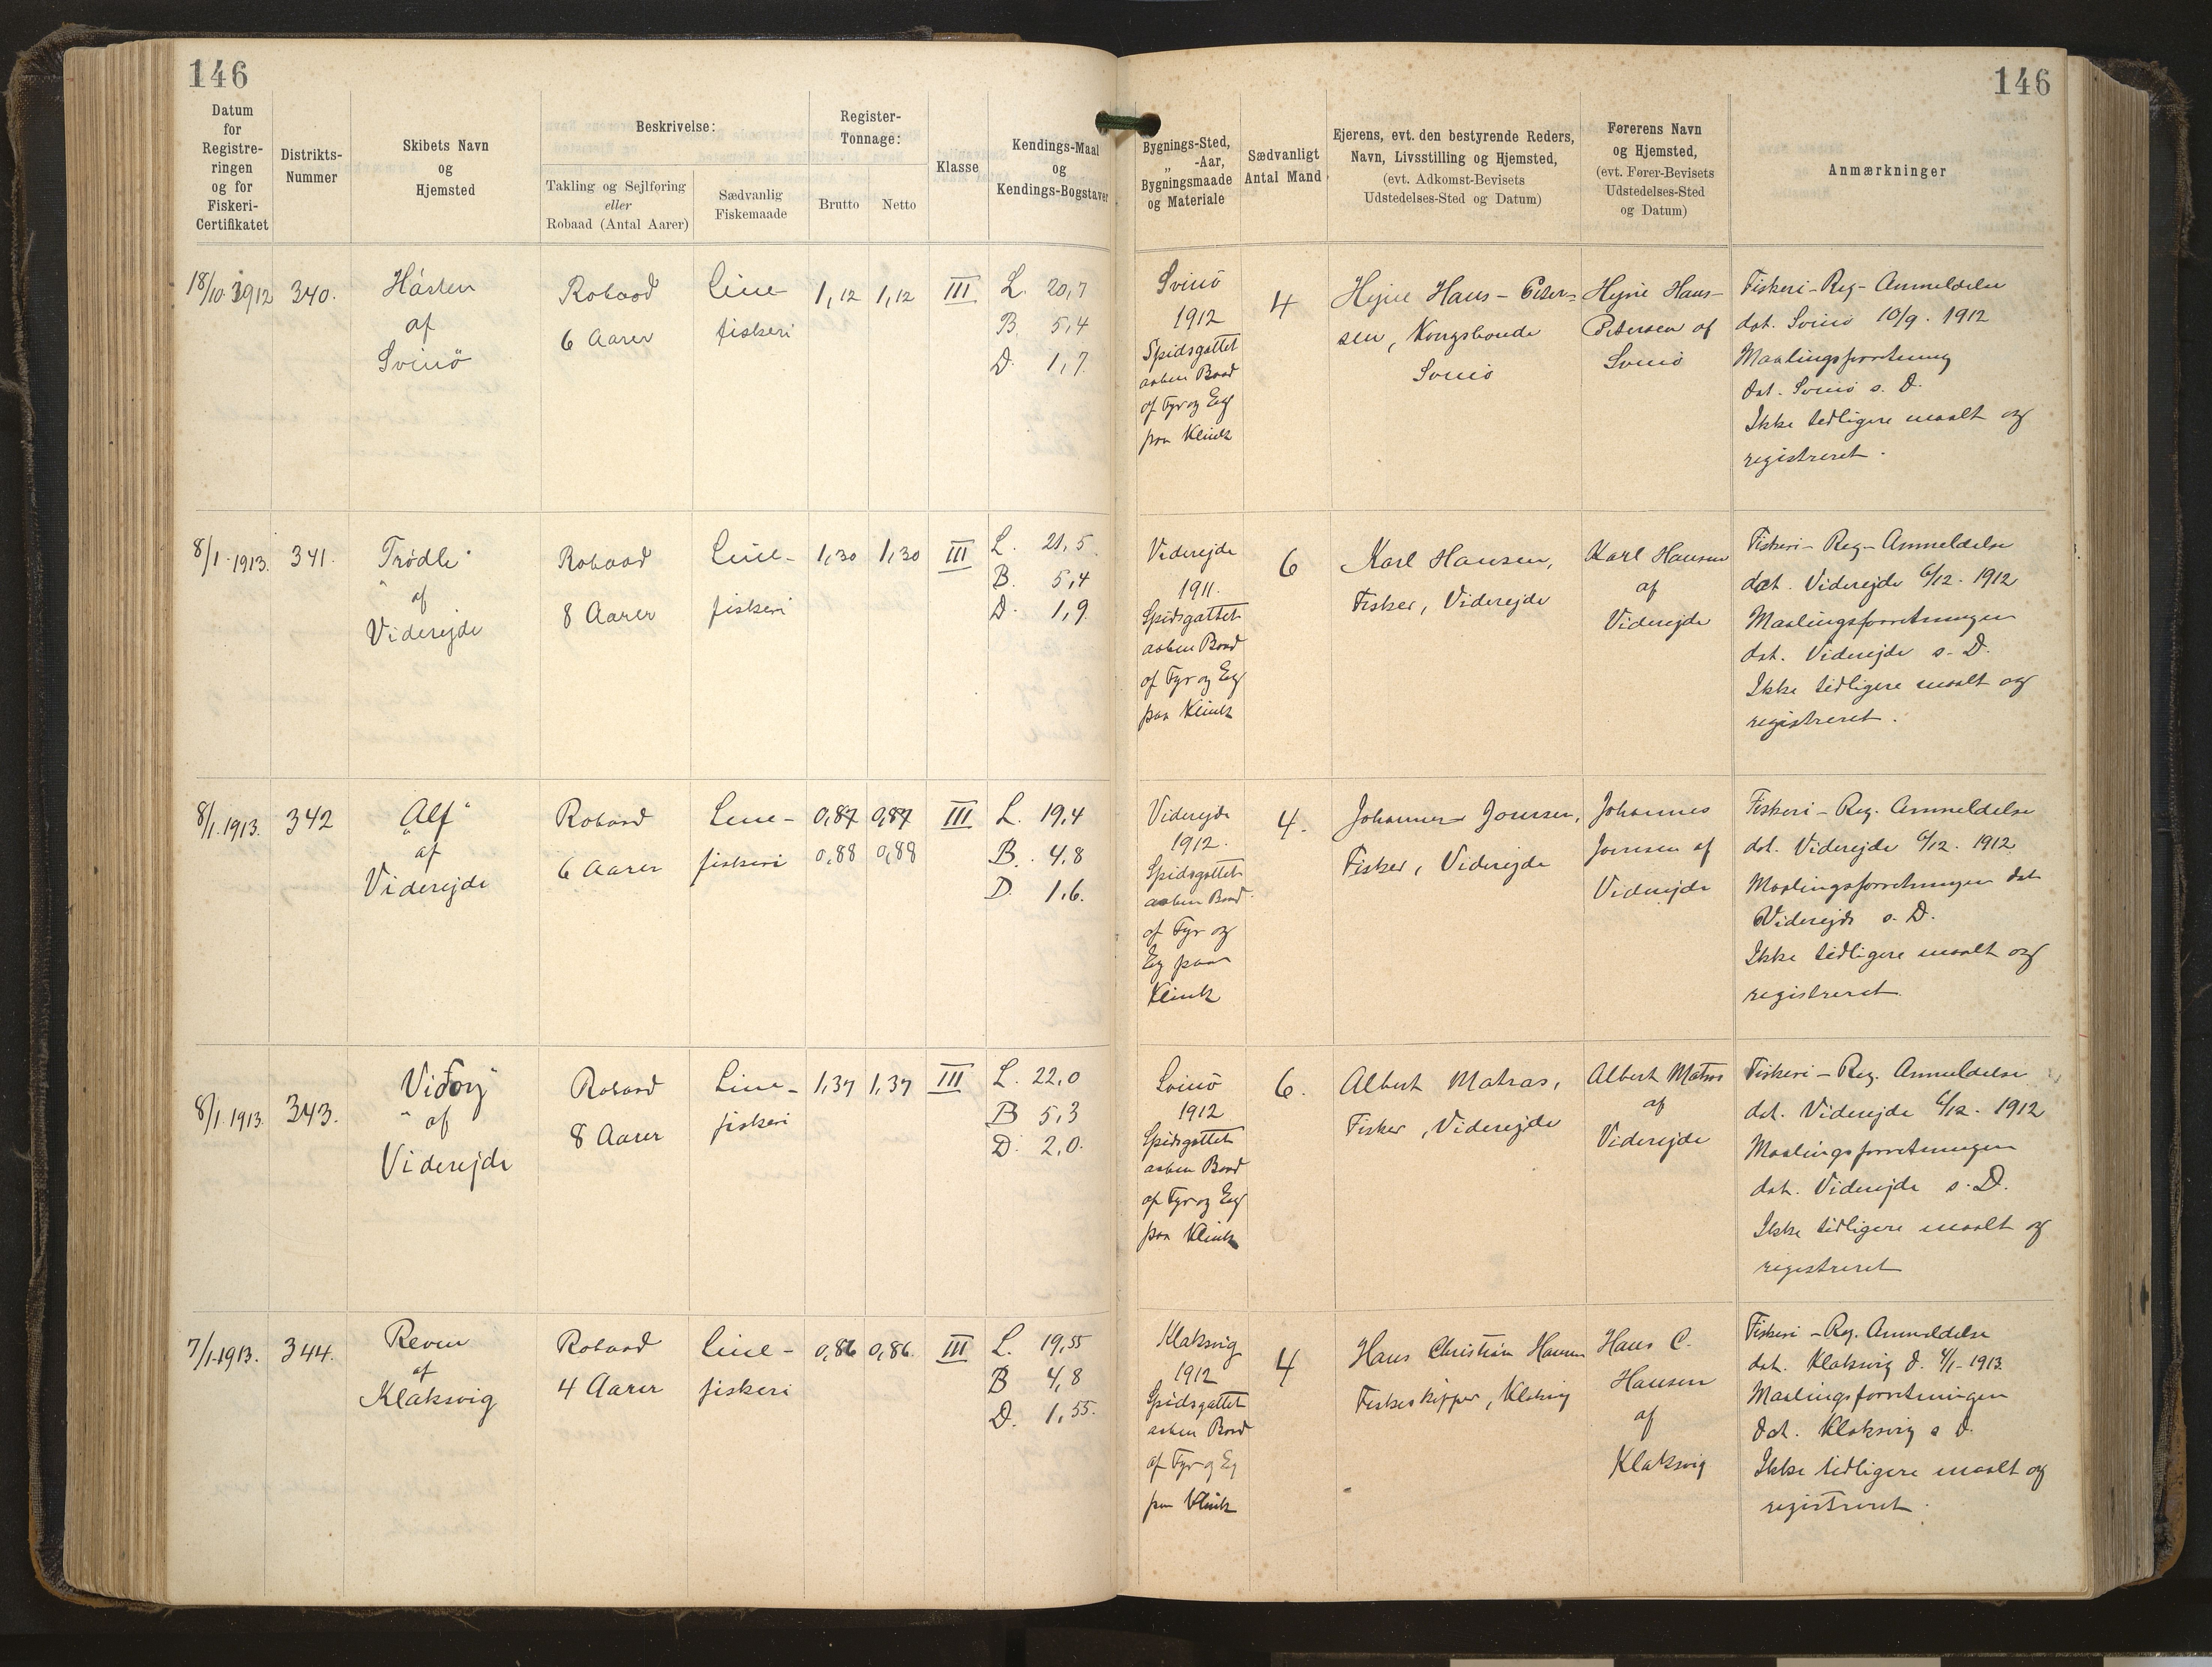 146
146
Datum
for
Registre-
ringen
og for
Fiskeri-
Certifikatet
Distrikts-
Nummer
Skibets Navn
og
Hjemsted
Beskrivelse:
Takling og Sejlføring
eller
Robaad (Antal Aarer)
Sædvanlig
Fiskemaade
Register-
Tonnage:
Brutto
Netto
Klasse
Kendings-Maal
og
Kendings-Bogstaver
Bygnings-Sted,
„ -Aar,
Bygningsmaade
og Materiale
Sædvanligt
Antal Mand
Ejerens, evt. den bestyrende Reders,
Navn, Livsstilling og Hjemsted,
(evt. Adkomst-Bevisets
Udstedelses-Sted og Datum)
Førerens Navn
og Hjemsted,
(evt. Fører-Bevisets
Udstedelses-Sted
og Datum)
Anmærkninger
18/10 1912
340.
Hásten
af
Svinö
Robaad
6 Aarer
Line-
fiskeri
1,12
1,12
III
L. 20,7
B. 5,4
D. 1,7
Svinö
1912
Spidsgattet
aaben Baad
af Fyr og Eeg
paa Klink
4
Hejne Hans-Peter-
sen, Kongsbonde
Svinö
Hejne Hans-
Petersen af
Svinö
Fiskeri-Reg-Anmeldelse
dat. Svinö 10/9. 1912
Maalingsforretning
dat. Svinö s. D.
Ikke tidligere maalt og
registreret.
8/1-1913.
341.
„Trödli"
af
Viderejde
Robaad
8 Aarer
Line-
fiskeri
1,30
1,30
III
L. 21,5
B. 5,4
D. 1,9
Viderejde
1911.
Spidsgattet
aaben Baad
af Fyr og Eeg
paa Klink
6
Karl Hansen,
Fisker, Viderejde
Karl Hansen
af
Viderejde
Fiskeri-Reg-Anmeldelse
dat. Viderejde 6/12. 1912
Maalingsforretningen
dat. Viderejde s. D.
Ikke tidligere maalt og
registreret.
8/1.1913.
342
„Alf"
af
Viderejde
Robaad
6 Aarer
Line-
fiskeri
0,87
0,87
0,88
0,88
III
L. 19,4
B. 4,8
D. 1,6.
Viderejde
1912.
Spidsgattet
aaben Baad
af Fyr og
Eg paa
Klink
4.
Johannes Joensen,
Fisker, Viderejde
Johannes
Joensen af
Viderejde
Fiskeri-Reg. Anmeldelse
dat. Viderejde 6/12. 1912
Maalingsforretningen dat
Viderejde s. D.
Ikke tidligere maalt og
registreret.
8/1.1913.
343.
„Vidoy"
af
Viderejde
Robaad
8 Aarer
Line-
fiskeri
1,37
1,37
III
L. 22,0
B 5,3
D. 2,0.
Svinö
1912
Spidsgattet
aaben Baad
af Fyr og Eeg
paa Klink
6.
Albert Matras,
Fisker, Viderejde
Albert Matras
af
Viderejde
Fiskeri-Reg. Anmeldelse
dat. Viderejde 6/12. 1912
Maalingsforretningen
dat. Viderejde s. D.
Ikke tidligere maalt og
registreret
7/1-1913.
344.
Reven
af
Klaksvig
Robaad
4 Aarer
Line-
fiskeri
0,86
0,86.
III
L. 19,55
B 4,8
D. 1,55.
Klaksvig
1912
Spidsgattet
aaben Baad
af Fyr og Eg
paa Klink
4
Hans Christian Hansen
Fiskeskipper, Klaksvig
Hans C.
Hansen
af
Klaksvig
Fiskeri-Reg. Anmeldelse
dat. Klaksvig d. 4/1-1913
Maalingsforretningen
dat. Klaksvig s d.
Ikke tidligere maalt og
registreret.